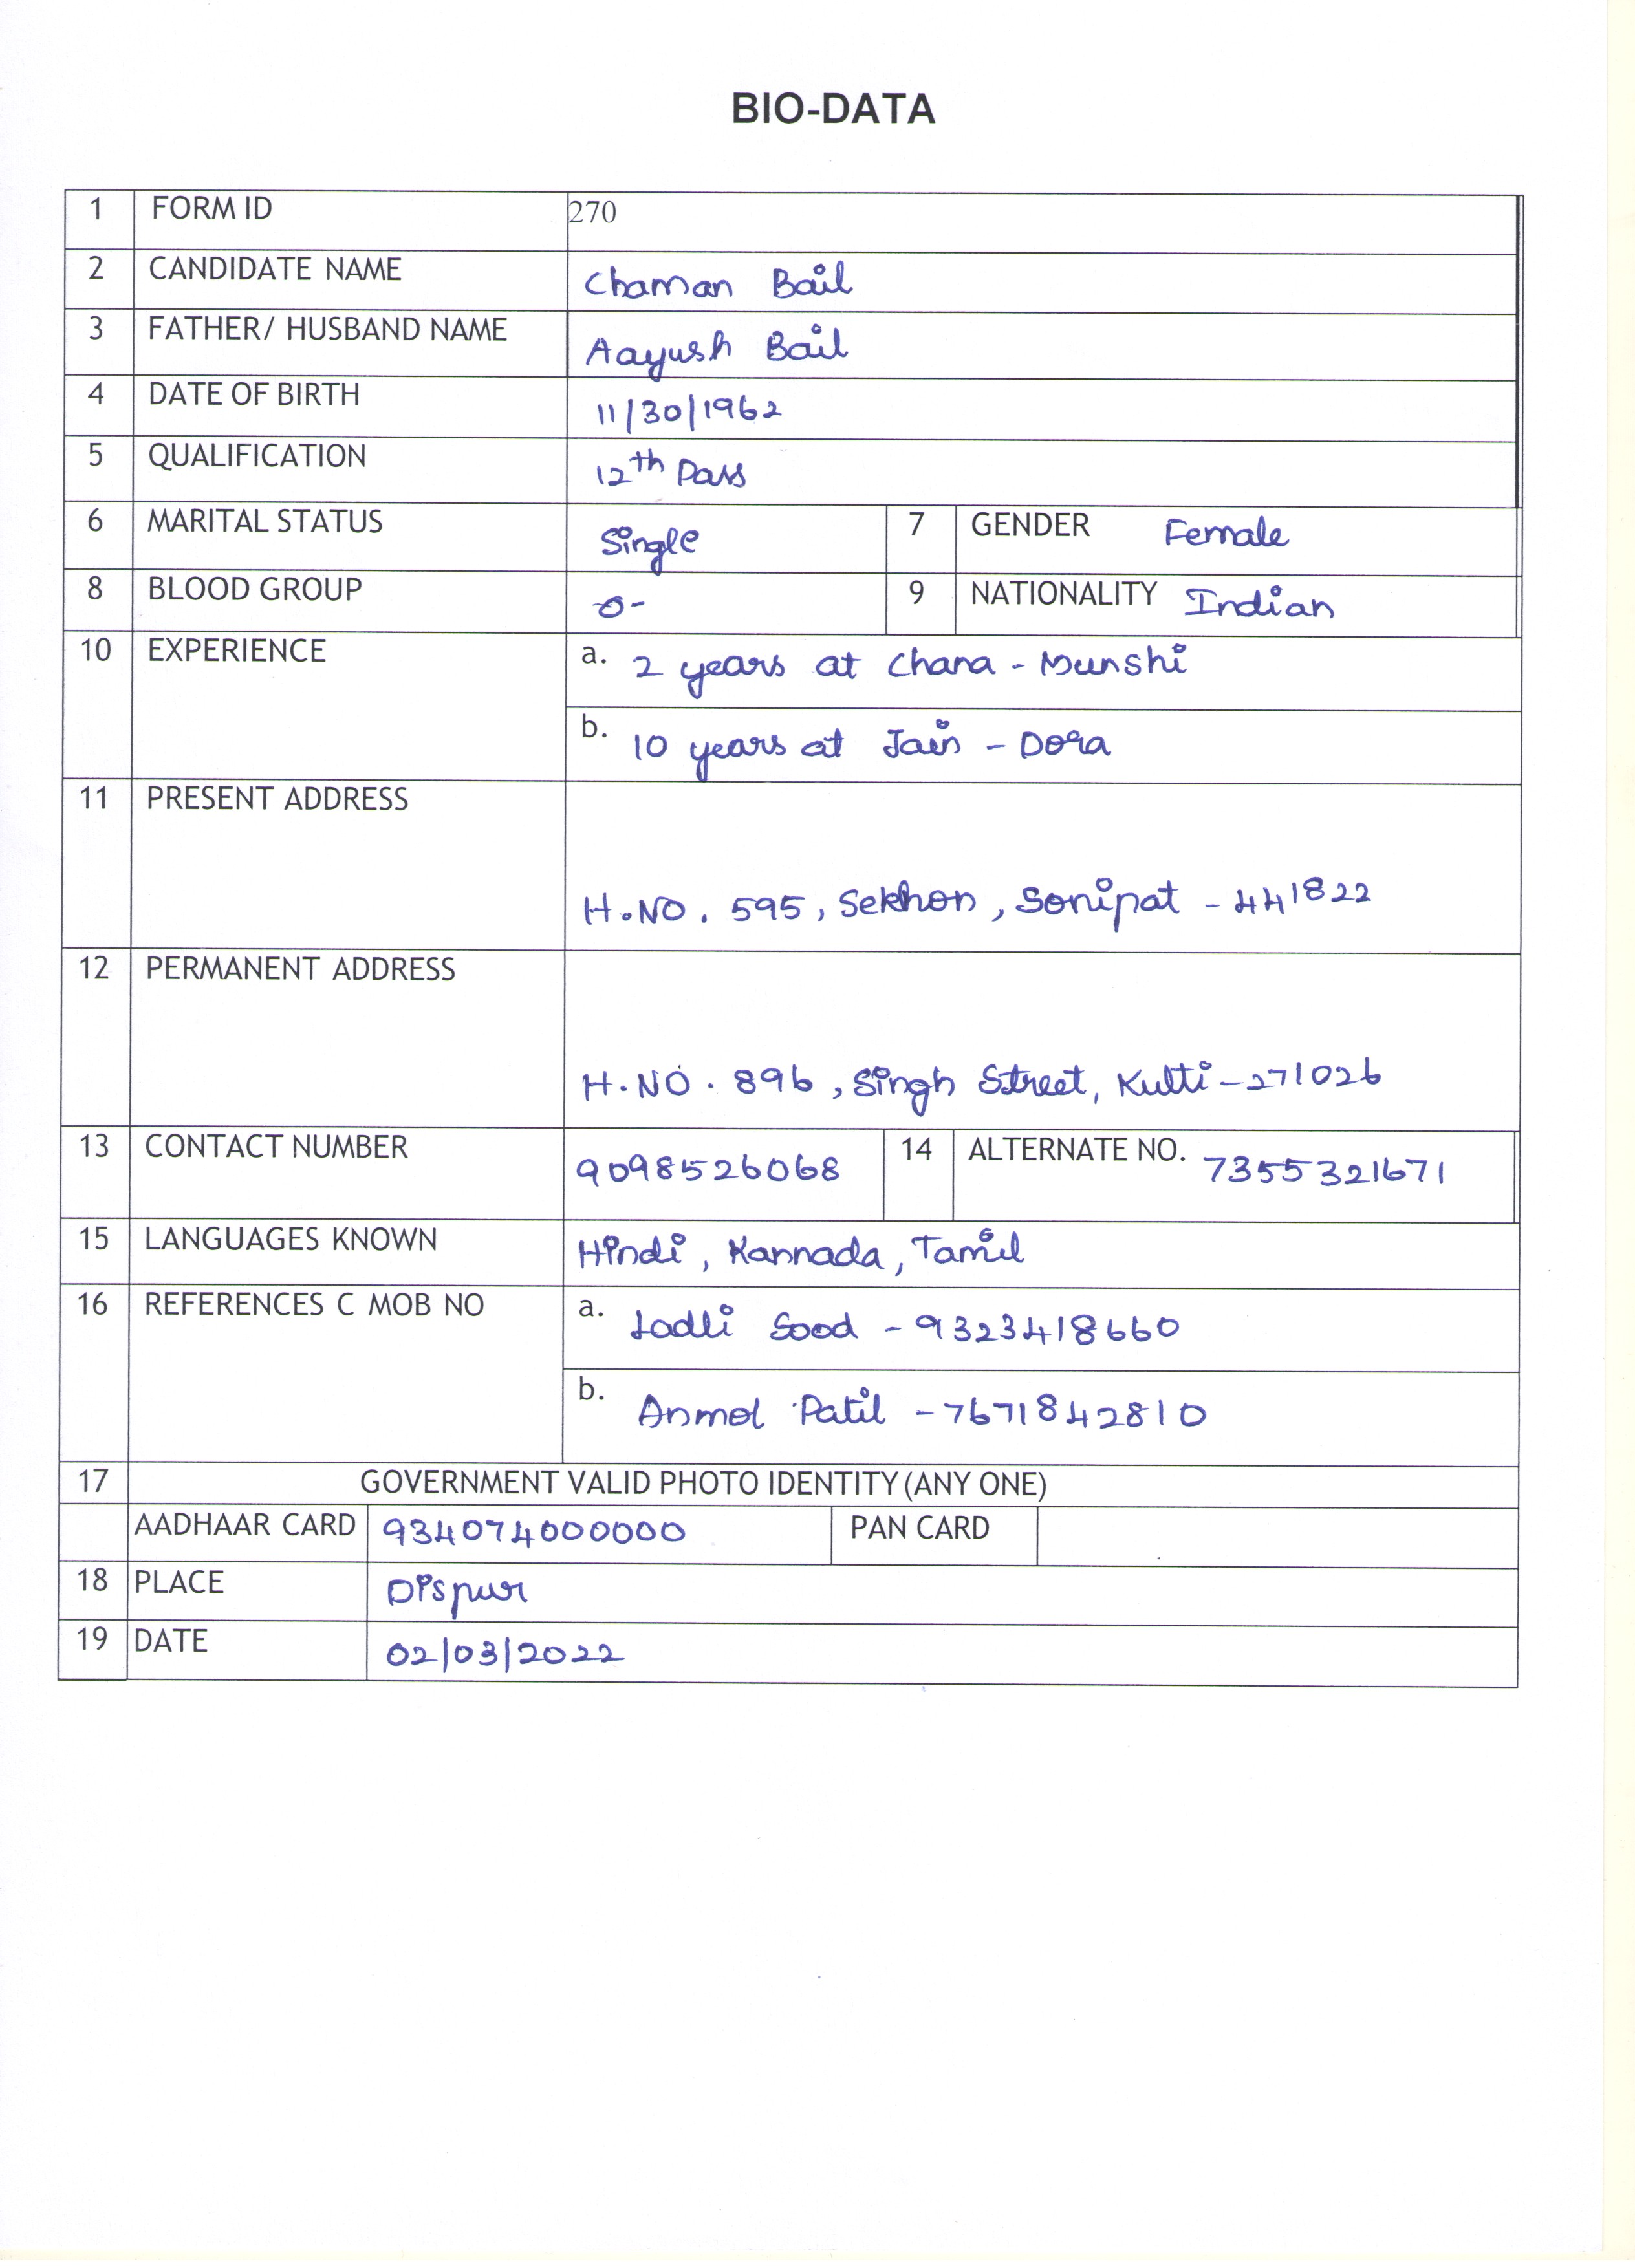 BIO-DATA
1 FORM ID 270
2 CANDIDATE NAME Chaman Bail
3 FATHER/ HUSBAND NAME Aayush Bail
4 DATE OF BIRTH 11/30/1962
5 QUALIFICATION 12th Pass
6 MARITAL STATUS Single 7 GENDER Female
8 BLOOD GROUP O- 9 NATIONALITY Indian
10 EXPERIENCE a. 2 years at Chana - Munshi
b. 10 years at Jain - Dora
11 PRESENT ADDRESS
H.NO. 595, Sekhon, Sonipat - 441822
12 PERMANENT ADDRESS
H.NO. 896, Singh Street, Kulti - 271026
13 CONTACT NUMBER 9098526068 14 ALTERNATE NO. 7355321671
15 LANGUAGES KNOWN Hindi, Kannada, Tamil
16 REFERENCES C MOB NO a. Ladli Sood - 9323418660
b. Anmol Patil - 7671842810
17 GOVERNMENT VALID PHOTO IDENTITY (ANY ONE)
AADHAAR CARD 934074000000 PAN CARD
18 PLACE Dispur
19 DATE 02/03/2022